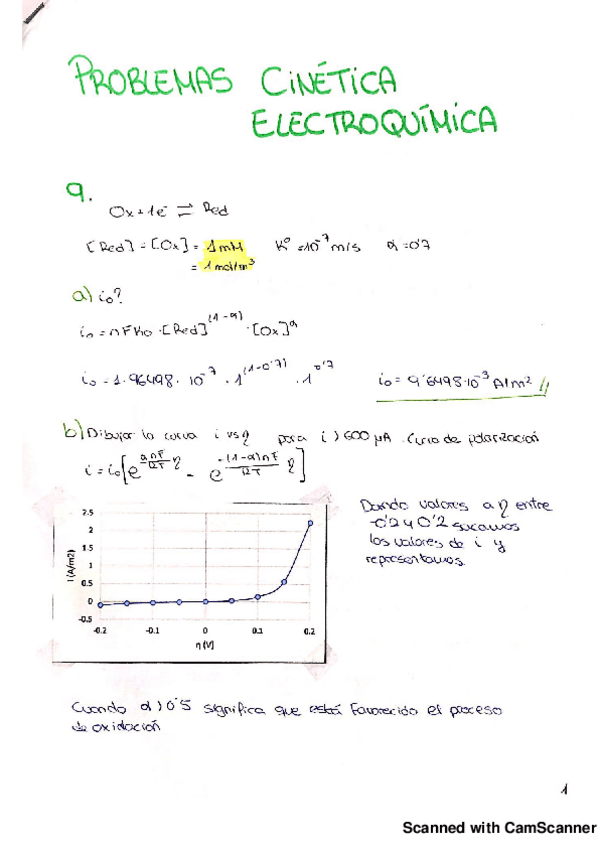 PROBLEMAS CINÉTICA
ELECTROQUÍMICA
9.
Ox + 1e⁻ ⇌ Red
[Red] = [Ox] = 1 mM K⁰ = 10⁻⁷ m/s α = 0'7
= 1 mol/m³
a) i₀?
i₀ = nFk₀ · [Red]^(1-α) · [Ox]^α
i₀ = 1 · 96498 · 10⁻⁷ · 1^(1-0'7) · 1^0'7 i₀ = 9'6498·10⁻³ A/m²
b) Dibujar la curva i vs η para i > 600 μA. Curva de polarización
i = i₀ [e^(αnF/RT η) - e^(-(1-α)nF/RT η)]
Dando valores a η entre
-0'2 y 0'2 sacamos
los valores de i y
representamos.
2.5
2
1.5
1
0.5
0
-0.5
i (A/m2)
-0.2 -0.1 0 0.1 0.2
η (V)
Cuando α > 0'5 significa que está favorecido el proceso
de oxidación
1
Scanned with CamScanner